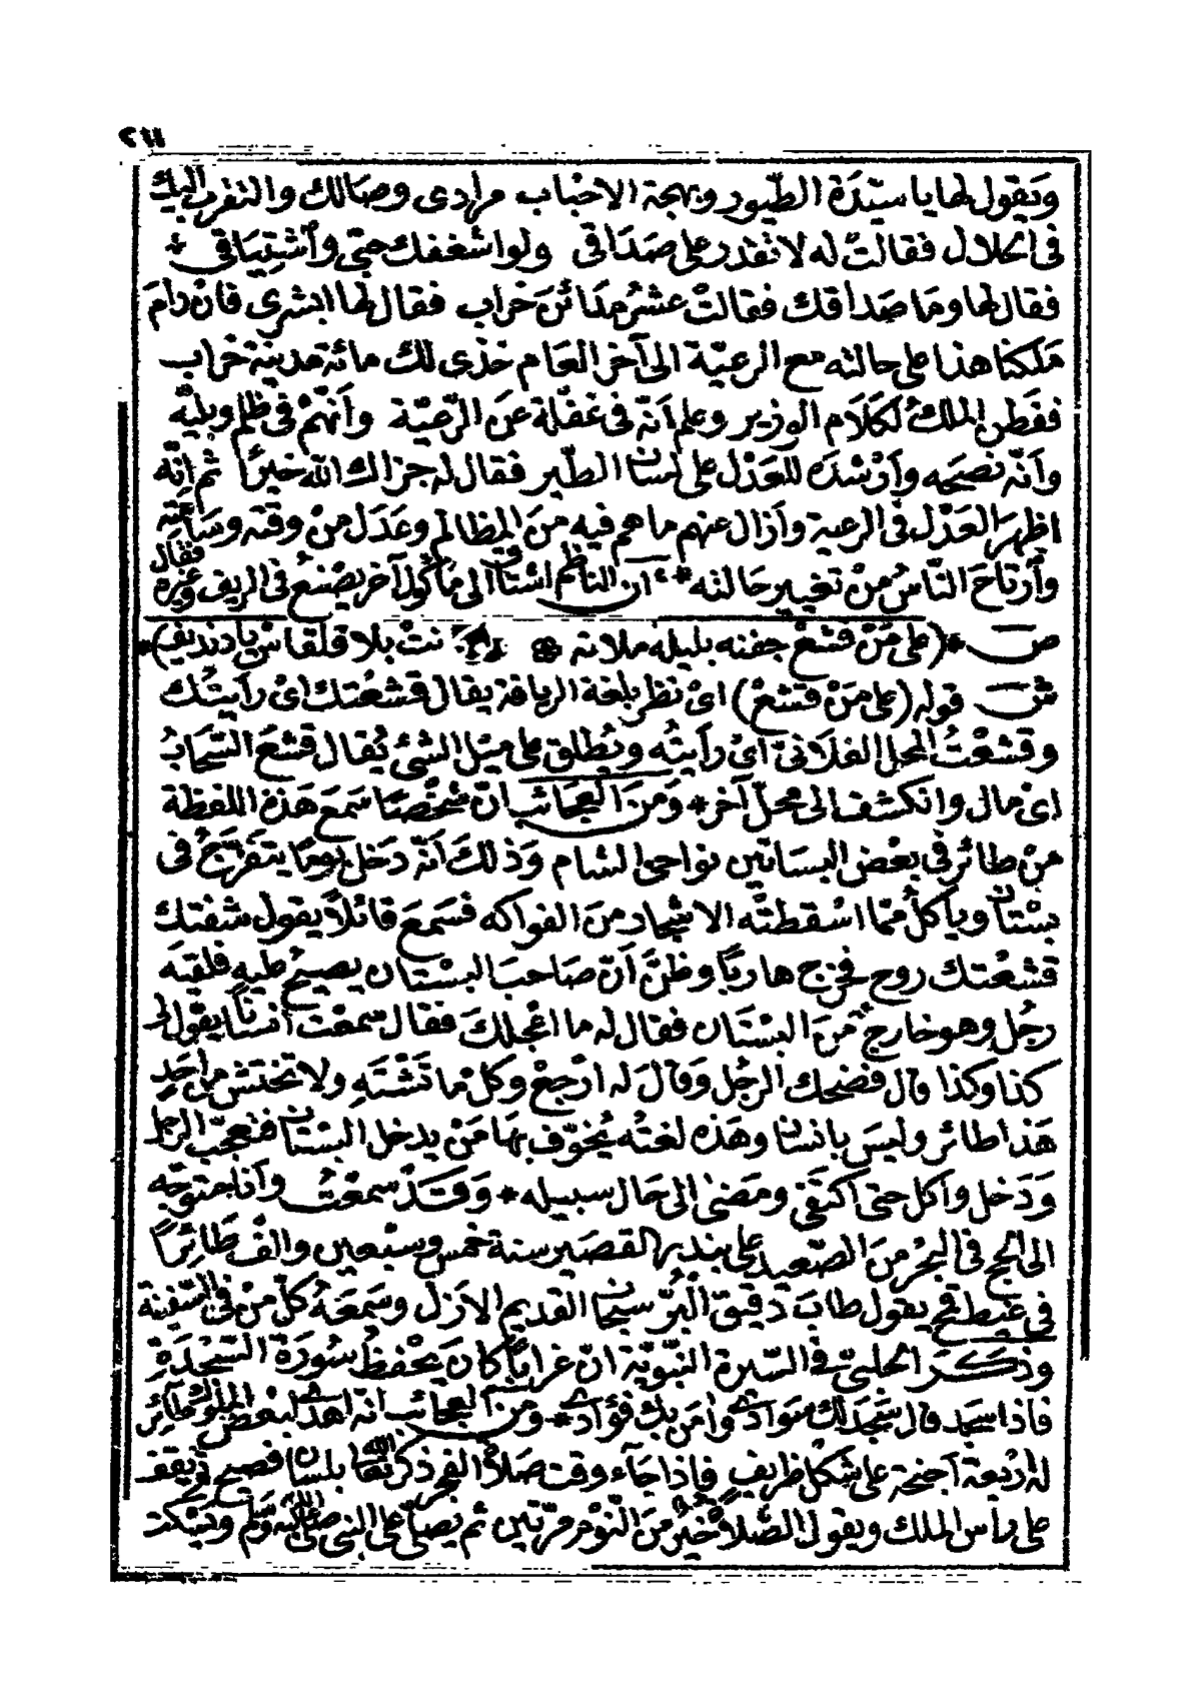 ٢١١
وَيَقول لها يا سَيِّدَة الطّيور وبهجة الاحْبَاب مرادى وصَالك والتقرب اليك
فى الحَلال فقالتْ له لا تقدر على صَدَاقى ولو اشغفك حبّى وأشتِيَاقى *
فقال لها وما صَداقك فقالتْ عشرُ مدَائنَ خراب فقال لها ابشرى فان دامَ
مَلكنا هذا على حالته مع الرعيّة الى آخر العَام خذى لك مائة مدينة خراب
ففَطن الملكُ لكَلَام الوزير وعلم اَنّه فى غفلة عنَ الرّعيّة وأنهمْ فى ظلم وبليّه
وأنّه نصَحَه وأرْشدَه للعَدْل على لسان الطّير فقال له جزاك الله خيرًا ثم انّه
اظهرَ العَدْل فى الرعية وأزال عنهم ما هم فيه منَ المظالم وعَدَل منْ وقته وسَاعَته
وأرتاحَ النّاسُ منْ تغيير حَالته * ان الناظم اشتاق الى مأكول آخر يصْنعُ فى الريف وغيره فقال
ص *(على مَنْ قشعْ جفنه بليله ملانه نتْ بلا قلقاسْ يا دنديف)*
ش قوله (على مَنْ قشعْ) اىْ نظر بلغة الريافة يقال قشعْتك اىْ رأيتُك
وقشعْتُ المحل الفلانىّ اىْ رأيتُه ويُطلق على ميَل الشئ يُقال قشعَ السّحَابُ
اىْ مال وانكشف الى محلّ آخر * وَمنَ العجائب انّ شخْصًا سَمعَ هَذه اللفظة
منْ طائر فى بعْض البسَاتين نواحى الشام وَذلكَ أنّه دَخل يومًا يتفَرّجُ فى
بسْتان ويأكلُ ممّا اسْقطتْه الاشجار منَ الفواكه فسَمعَ قائلاً يقول شفتك
قشعْتك روح فخرج هاربًا وظنَّ أنّ صَاحبَ البسْتان يصيحُ عليه فلقيَه
رجُل وهو خارج منَ البسْتان فقال له ما اعْجلكَ فقال سمعْت أنسانًا يقول لى
كذا وكذا قال فضحك الرجُل وَقالَ له ارْجعْ وكلْ ما تشْتَهِ ولا تختش من احَدٍ
هَذا طائر وليسَ بانسان وهَذه لغتُه يُخوّف بهَا مَنْ يدخل البسْتان فتعجّب الرجل
وَدَخل وأكل حتى اكتفى ومَضىٰ الى حَال سبيله * وَقَدْ سمعْتُ وأنا متوجّه
الى الحج فى البحْر منَ الصّعيد على بندر القصَير سنة خمس وسبْعين والف طَائِرًا
فى غيط قمح يقول طابَ دَقيقُ البُرّ سبحان القديم الاَزلى وسَمعَهُ كلّ منْ فى السّفينة
وذكَرَ الحلبىّ فى السّيرة النّبويّة انّ غرابًا كانَ يحْفظُ سُورَةَ السّجْدَةِ
فاذا سجد قال سَجَدَ لك سَوادى وامَن بك فؤادى * ومن العجائب انّه اهدى لبعْض الملوك طائر
له اربَعة أجنحة على شكل ظريفٍ فاذا جَاء وقت صَلاة الفجر ذكر الله تعا بلسان فصيح ثم يقف
على رأس الملك ويقول الصّلاةُ خيرٌ منَ النّوْم مرّتين ثم يصلّى على النبى صلى الله عليه وسلم ويَسْكت